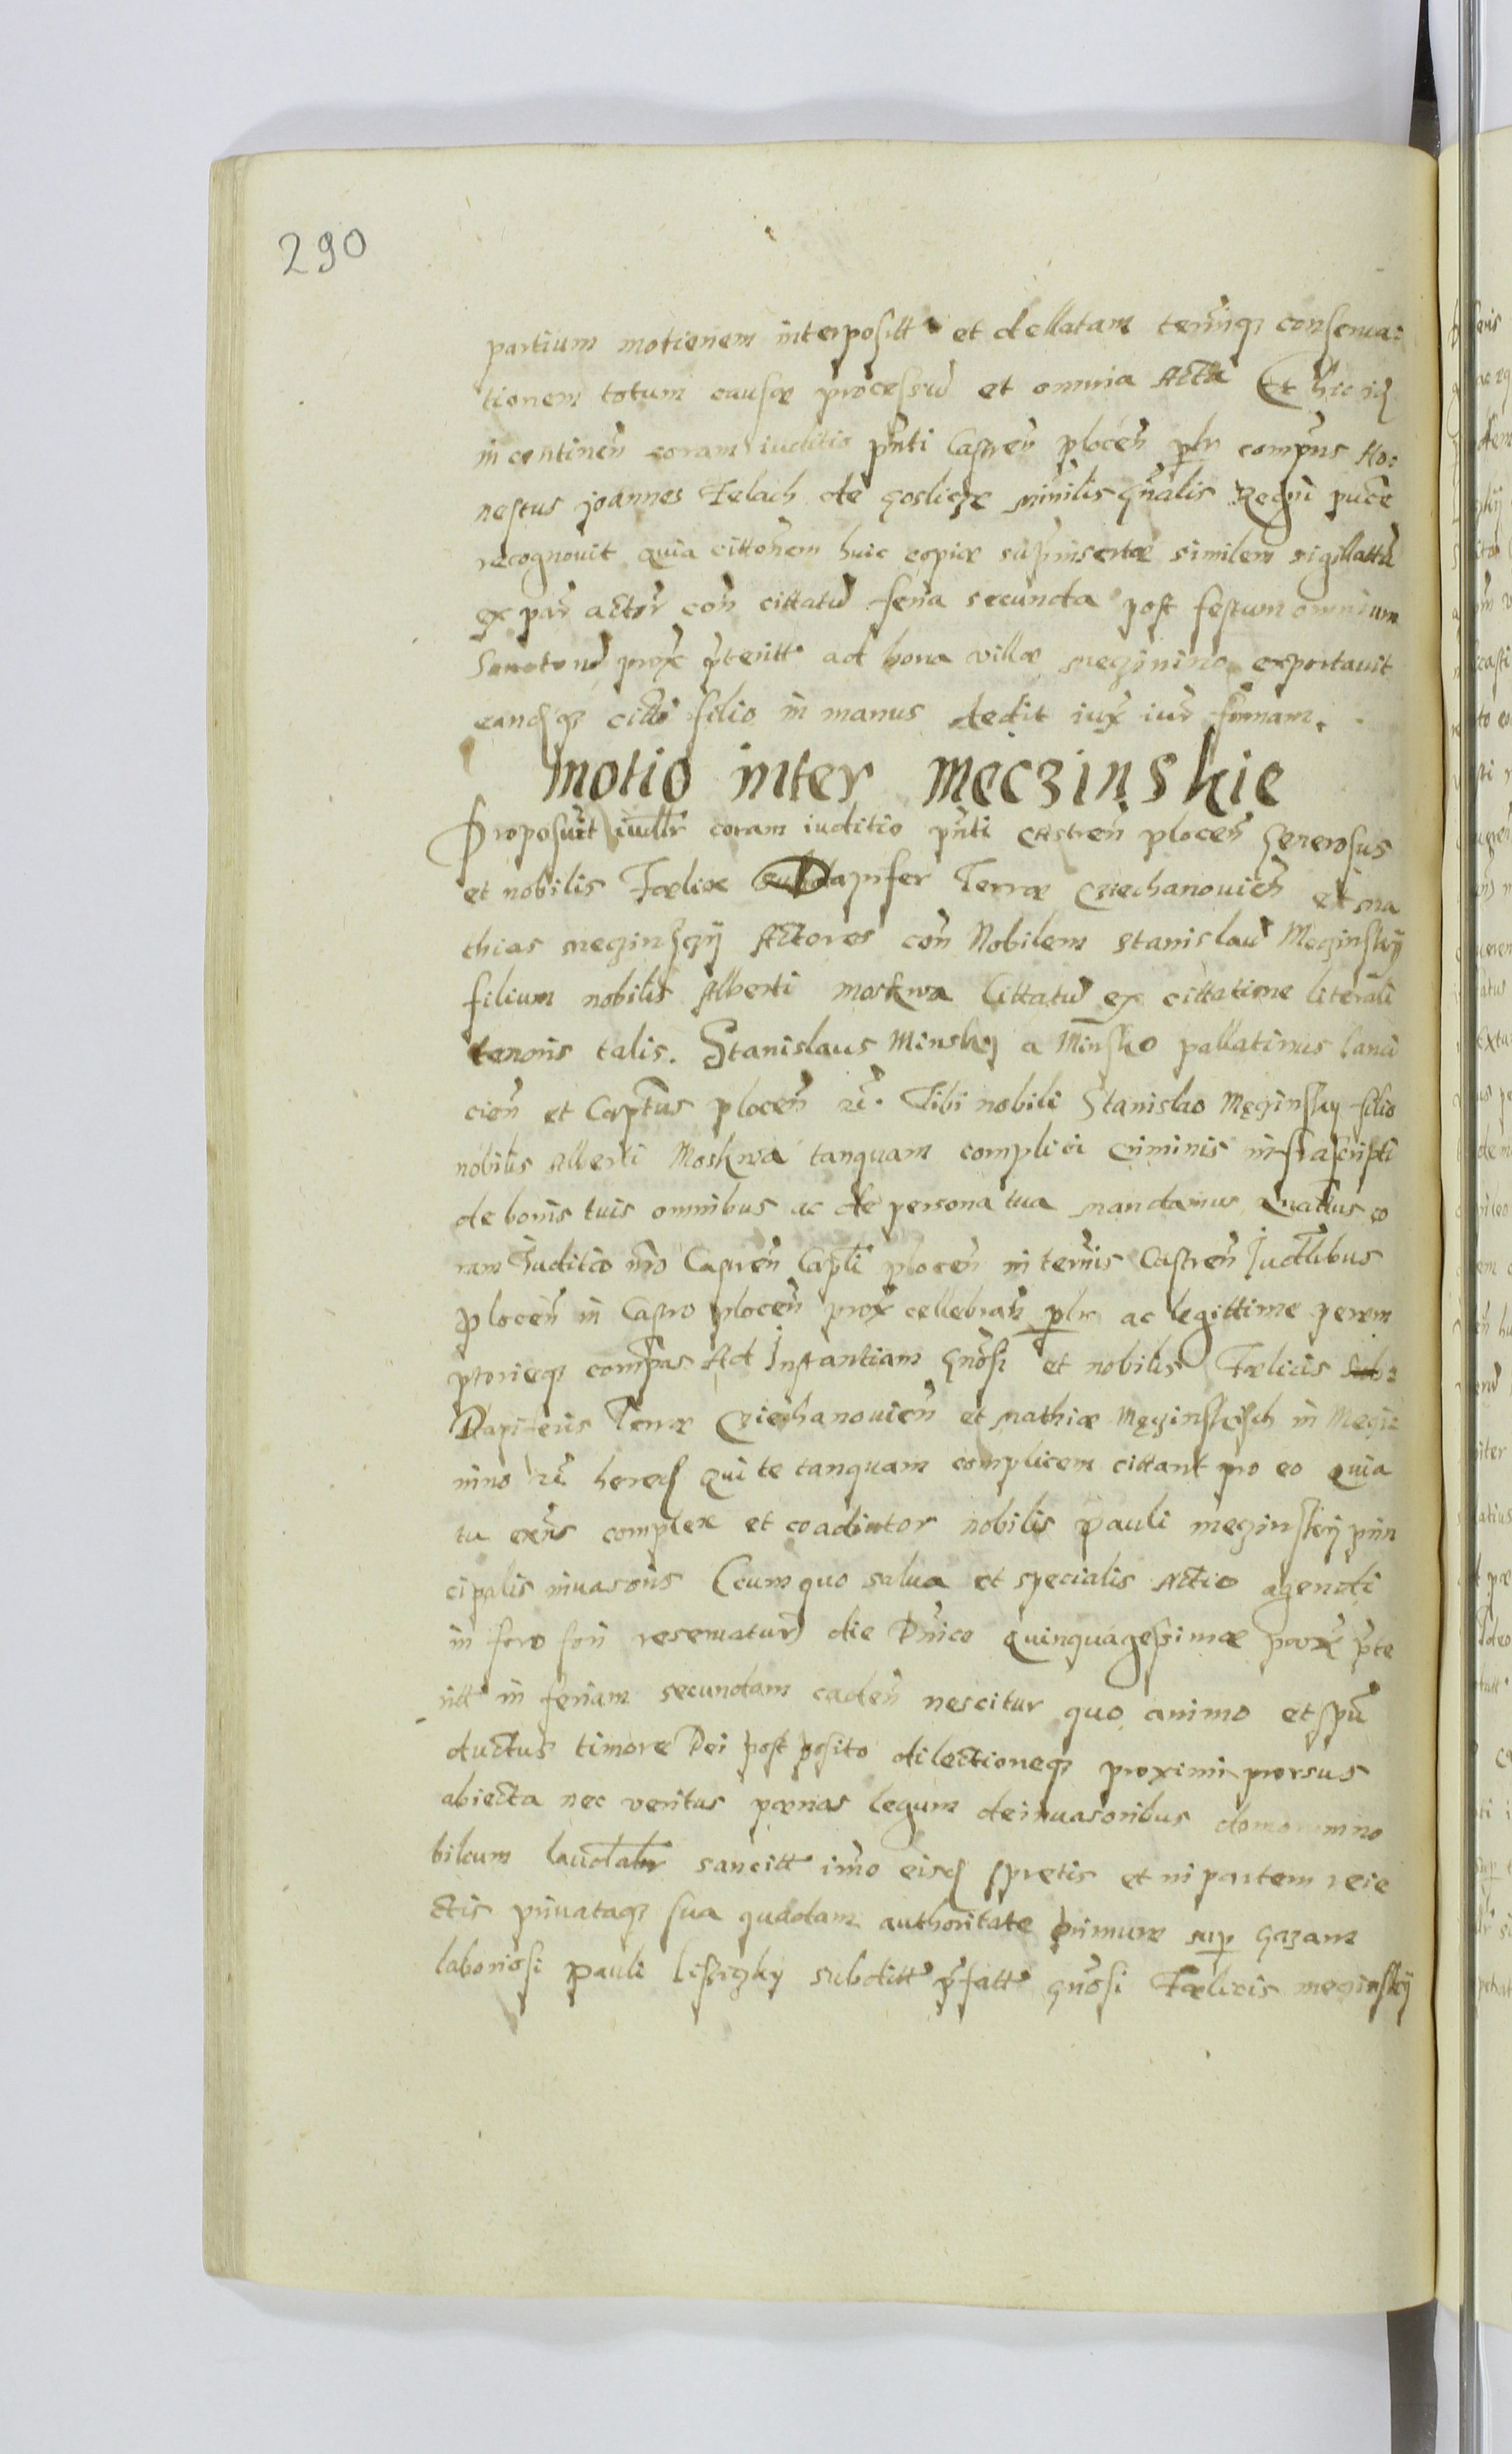 290
partium motionem interpositt et dellatam terminq3 conserua:
tionem totum causæ processũ et omnia Acta Et hic id
in continen̄ coram iuditio pn̄ti Castren̄ plocen̄ plr compns Ho:
nestus joannes Felach de goslicze ministlis gn̄alis Regni puce
recognouit quia cittonem huic copiæ suprinsertæ similem sigillattũ
ex par actor con cittatũ feria secunda post festum omnium
Sanctorũ prox pteritt ad bona villæ meginino exportauit
eandq3 citto filio in manus dedit iux iur formam.
Motio inter Meczinskie
Proposuit iudllr coram iuditio pn̄ti castren̄ plocen̄ generosus
et nobilis Fælix SubDapifer Terræ Cziechanouien̄ et ma
thias meginsgij Actores con̄ Nobilem Stanislaũ Meginskij
filium nobilis Alberti Moskwa Cittatũ ex cittatione literali
tenoris talis. Stanislaus Minskij a Minsko pallatinus lanci
cien̄ et Captus plocen̄ zc. Tibi nobili Stanislao Męginsky filio
nobilis Alberti Moskwa tanquam complici criminis infrascripti
de bonis tuis omnibus ac de persona tua mandamus Quattus co
ram Juditio nr̄o Castren̄ Capli plocen̄ in termis Castren̄ Judlibus
plocen̄ in Castro plocen̄ prox cellebran̄ plr ac legittime perem
ptorieq3 compas Ad Instantiam gn̄osi et nobilis Fælicis Sub:
Dapiferis Terræ Cziechanouien̄ et Mathiæ Męginskisch in Megi:
nino zc hered Qui te tanquam complicem cittant pro eo quia
tu exns complex et coadiutor nobilis pauli meginskij prin
cipalis inuasoris (cum quo salua et specialis Actio agendi
in foro fori reseruatur) die Dn̄ico Quinquagesimæ prox pte
ritt in feriam secundam caden̄ nescitur quo animo et spũ
ductus timore Dei post posito dilectioneq3 proximi prorsus
abiecta nec veritus pœnas legum de inuasoribus domorum no
bilium laudablr sancitt imo eisd spretis et in partem reie
ctis priuataq3 sua quadam authoritate primum sup gazam
laboriosi pauli lisziczky subditt pfatt gn̄osi Fælicis meginskij